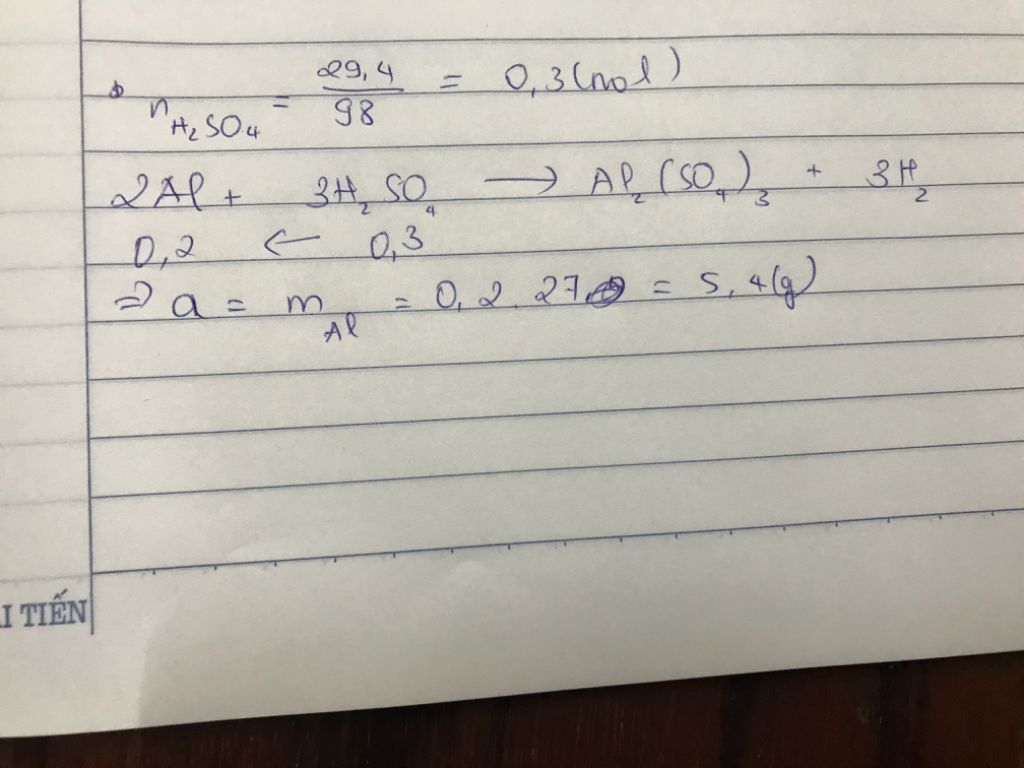 n_H₂SO₄ = 29,4/98 = 0,3 (mol)
2Al + 3H₂SO₄ → Al₂(SO₄)₃ + 3H₂
0,2 ← 0,3
⇒ a = m_Al = 0,2.27 = 5,4(g)
I TIẾN